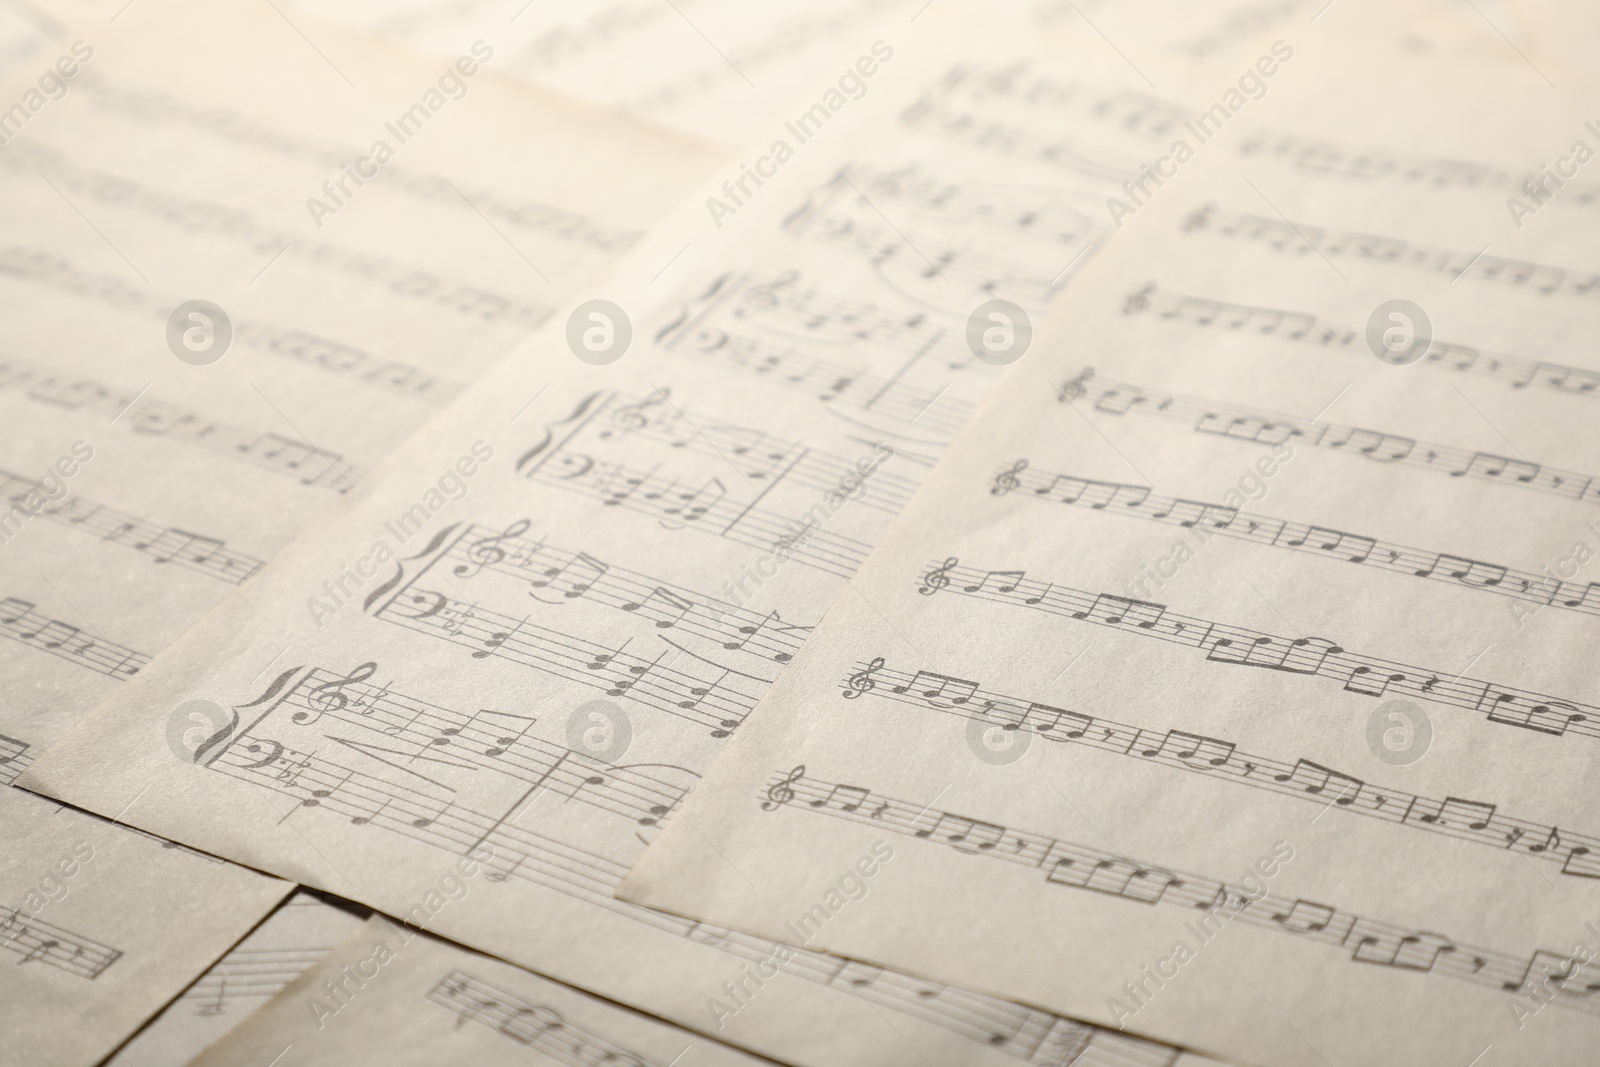 africa images
africa images
africa images
africa images
africa images
africa images
africa images
africa images
africa images
africa images
africa images
africa images
a
a
a
a
a
a
a
a